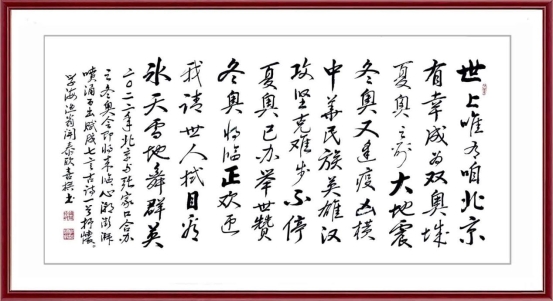 世上唯有咱北京
有幸成为双奥城
夏奥之前大地震
冬奥又逢疫凶横
中华民族英雄汉
攻坚克难步不停
夏奥已办举世赞
冬奥将临正欢迎
我请世人拭目看
冰天雪地舞群英
二〇二二年北京与张家口合办
之冬奥会即将来临心潮澎湃
喷涌而出赋成七言古诗一首抒怀。
学海渔翁